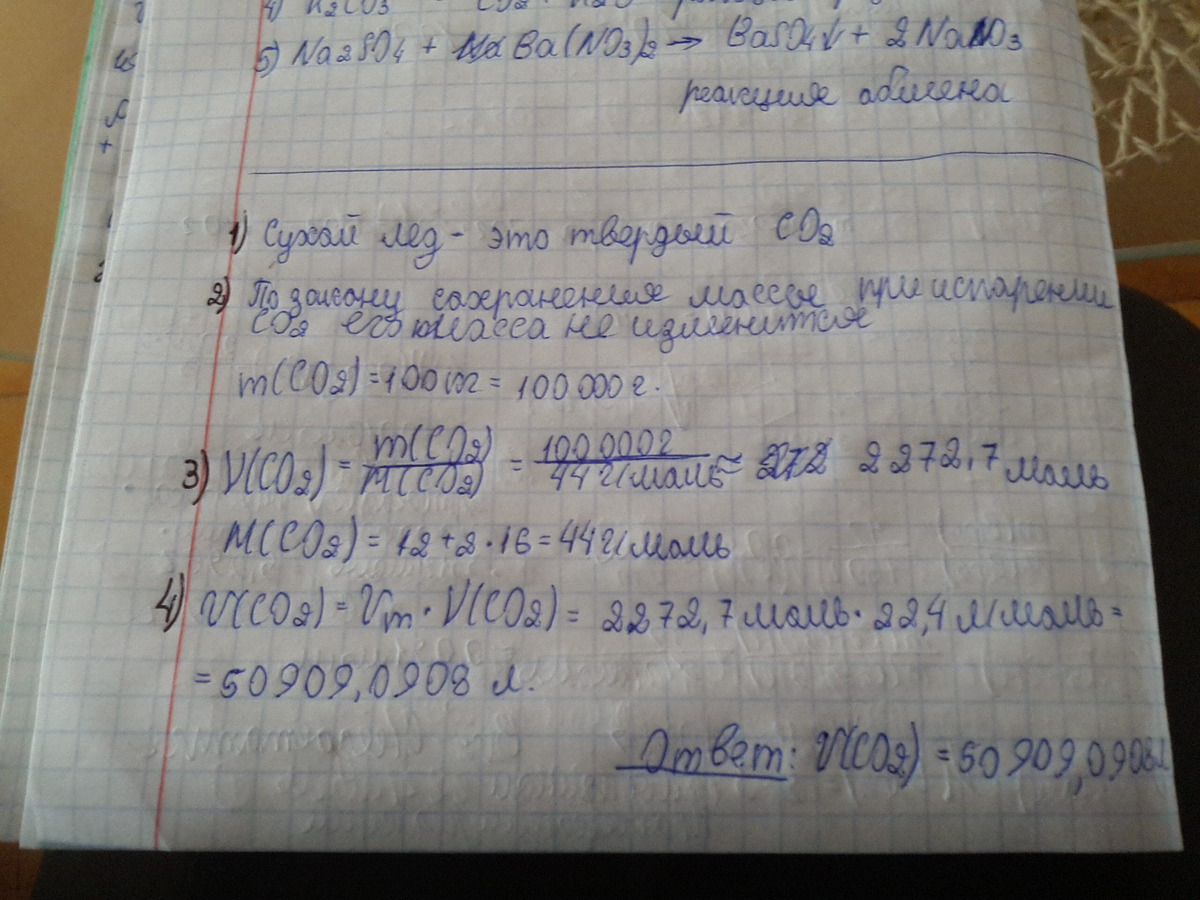 4) K2CO3 CO2 H2O
5) Na2SO4 + Ba(NO3)2 → BaSO4↓ + 2NaNO3
реакция обмена
1) Сухой лед - это твердый CO2
2) По закону сохранения массы при испарении
CO2 его масса не изменится
m(CO2) = 100 кг = 100 000 г.
3) ν(CO2) = m(CO2) / M(CO2) = 100 000 г / 44 г/моль ≈ 2272,7 моль
M(CO2) = 12 + 2 · 16 = 44 г/моль
4) V(CO2) = Vm · ν(CO2) = 2272,7 моль · 22,4 л/моль =
= 50909,0908 л.
Ответ: V(CO2) = 50909,0908л